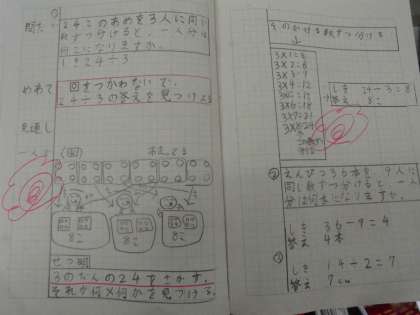 ①
問だい
24このあめを3人に同じ
数ずつ分けると、一人分は
何こになりますか。
しき24÷3
めあて
図をつかわないで、
24÷3の答えを見つけよう
見通し
一人ぶん
(図)
8こ
8こ
8こ
せつ明
3のだんの24をさがす。
それが何×何かを見つける。
3×1=3
3×2=6
3×3=9
3×4=12
3×5=15
3×6=18
3×7=21
3×8=24
しき 24÷3=8
答え 8こ
②
えんぴつ36本を、9人に
同じ数ずつ分けると、一人
分は何本になりますか。
しき 36÷9=4
答え 4本
③
しき 14÷2=7
答え 7cm